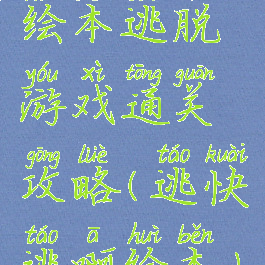 绘本逃脱
yóu xì tōng guān
游戏通关
gōng lüè táo kuài
攻略(逃快
táo ā huì běn
逃啊绘本)